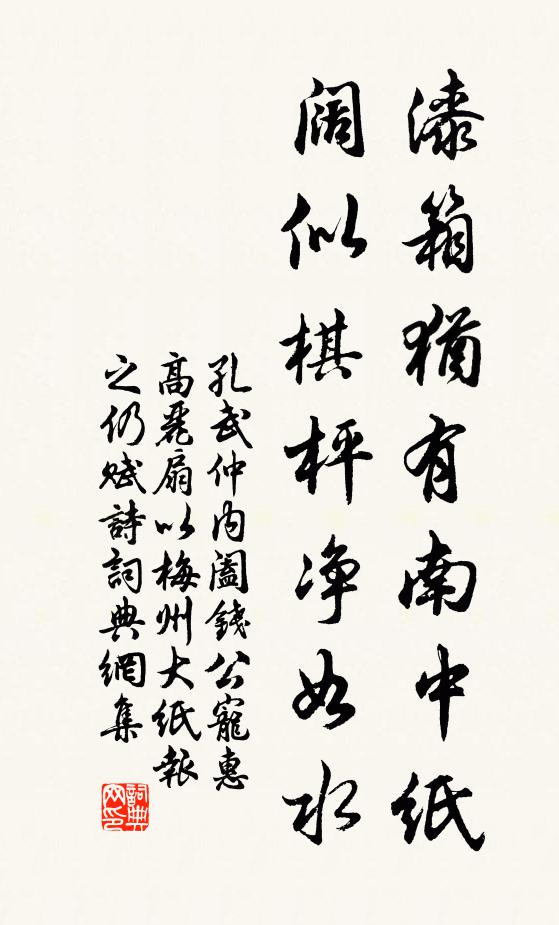 漆箱猶有南中紙
闊似棋枰净如水
孔武仲内閤錢公寵惠
高麗扇以梅州大紙報
之仍赋詩詞典網集
詞典
网印